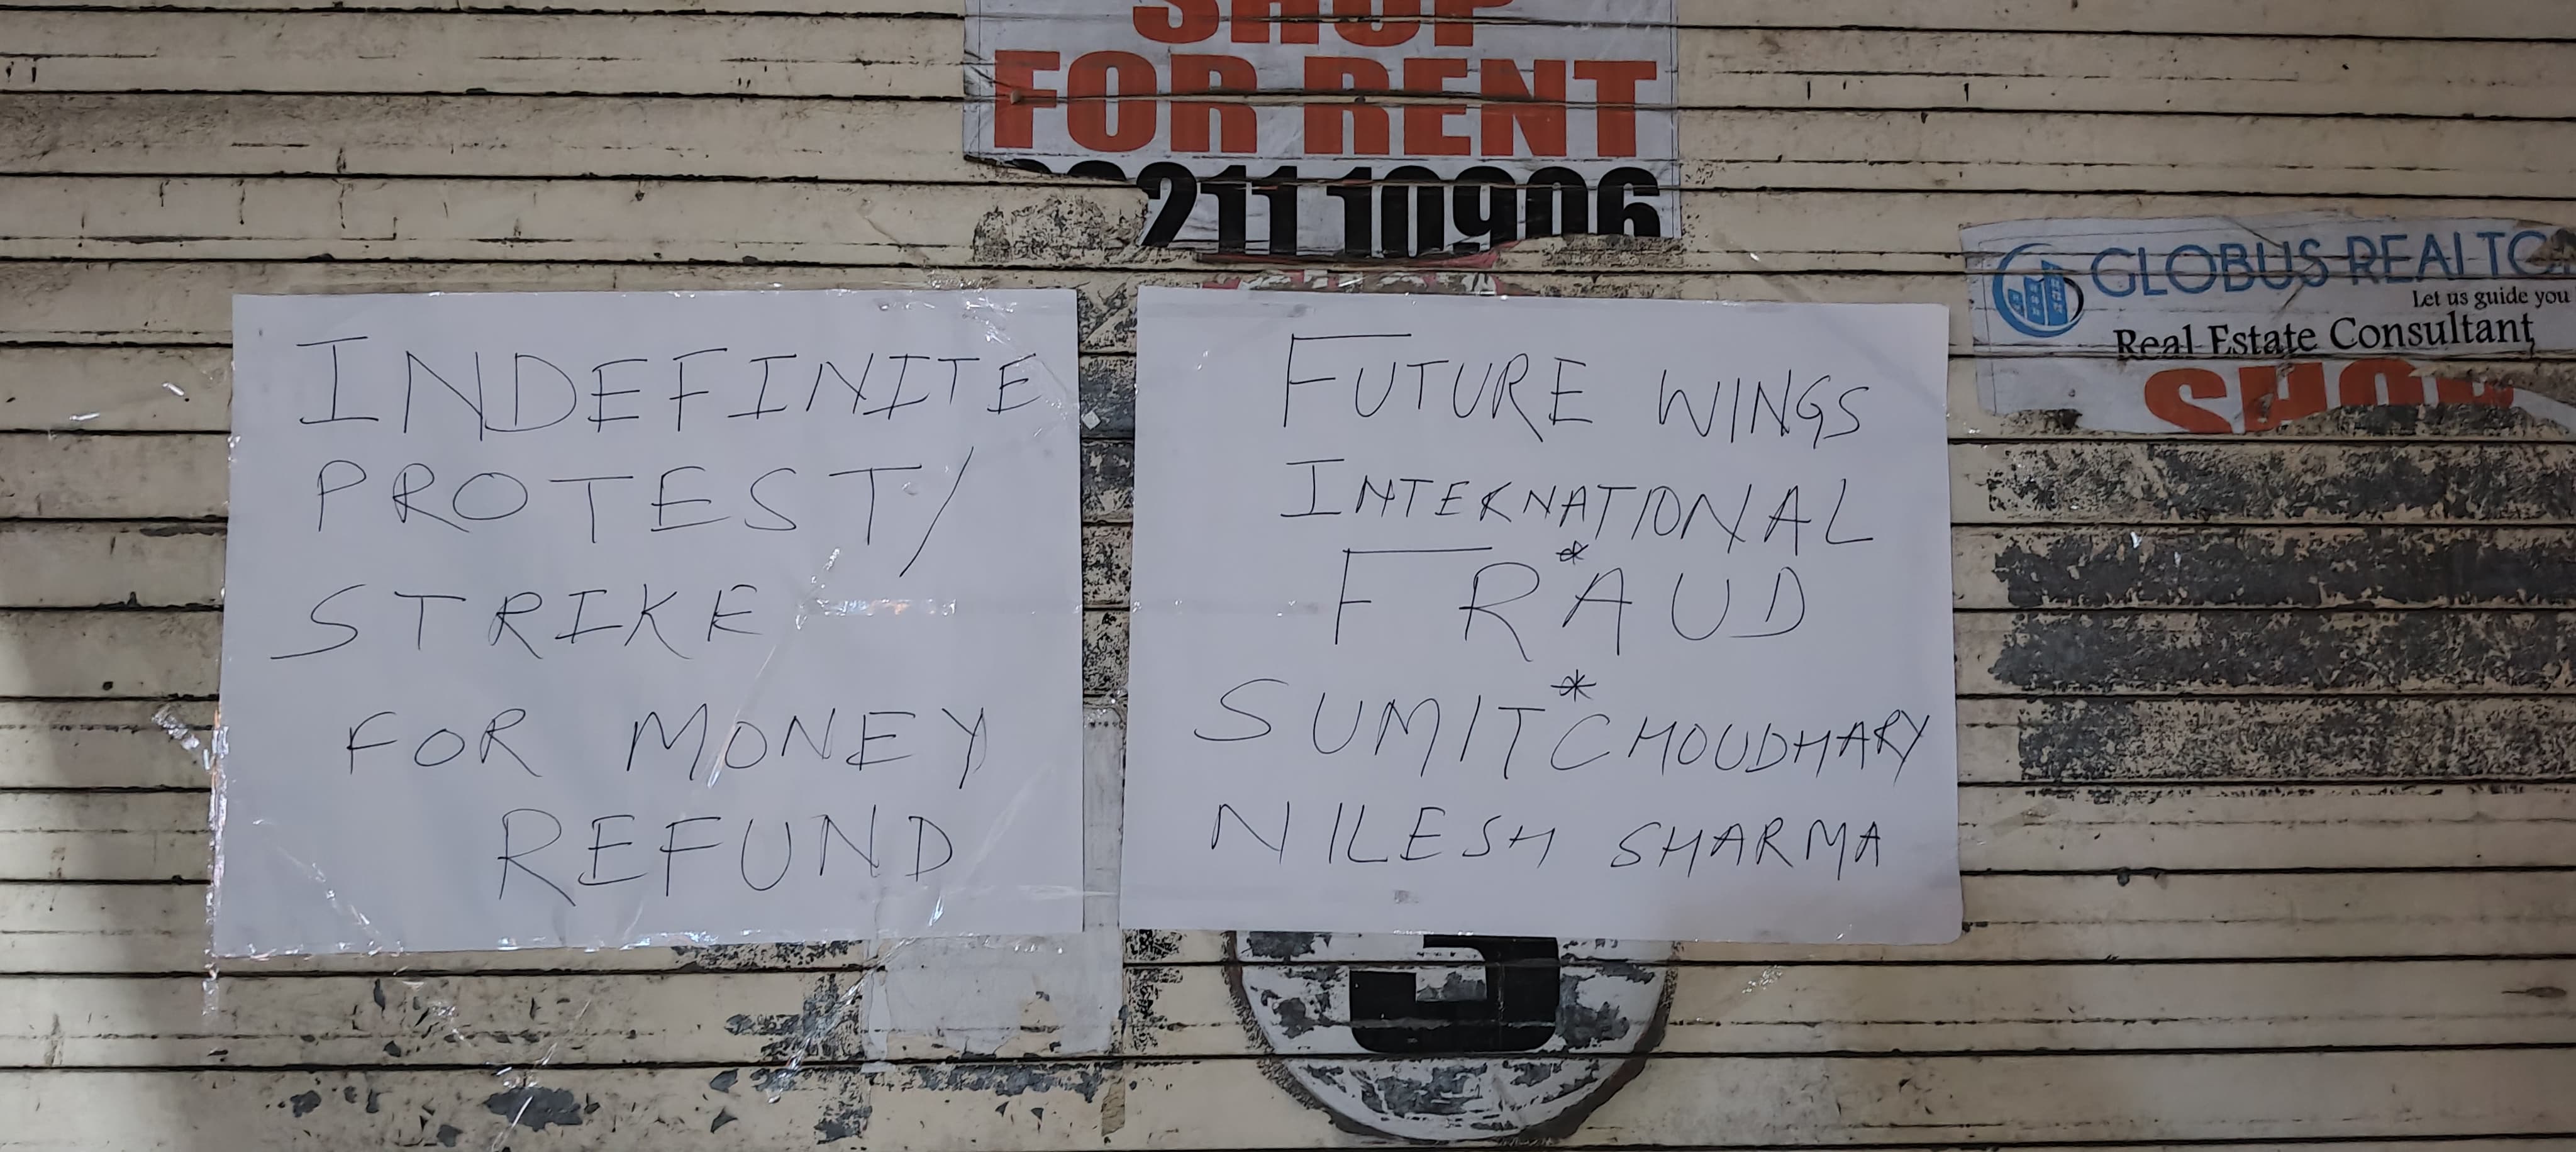 SHOP
FOR RENT
21110906
GLOBUS
Let us guide you
Real Estate Consultant
SHOP
INDEFINITE
PROTEST/
STRIKE
FOR MONEY
REFUND
FUTURE WINGS
INTERNATIONAL
* FRAUD *
SUMIT CHOUDHARY
NILESH SHARMA